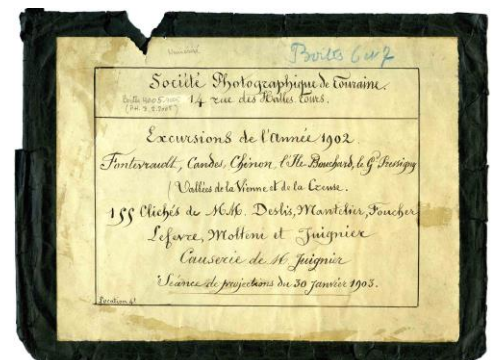 Boites 6 et 7
Société Photographique de Touraine.
14 rue des Halles. Tours.
Excursions de l'Année 1902.
Fontevrault, Candes, Chinon, l'Ile Bouchard, le Gd Pressigny
Vallées de la Vienne et de la Creuse.
155 Clichés de MM. Deslis, Mantelier, Foucher
Lefevre, Molteni et Juignier
Causerie de M. Juignier
Séance de projections du 30 Janvier 1903.